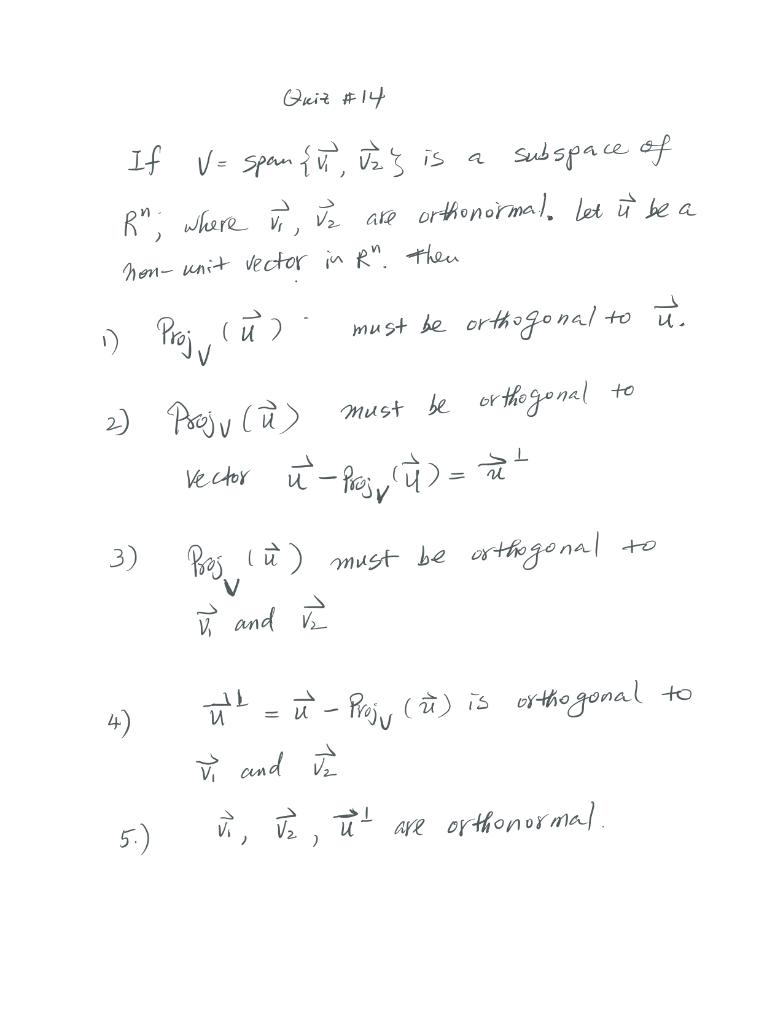 Quiz #14
If V = span {v⃗₁, v⃗₂} is a subspace of
Rⁿ; where v⃗₁, v⃗₂ are orthonormal. Let u⃗ be a
non-unit vector in Rⁿ. Then
1) Proj_V (u⃗) must be orthogonal to u⃗.
2) Proj_V (u⃗) must be orthogonal to
vector u⃗ - Proj_V (u⃗) = u⃗^⊥
3) Proj_V (u⃗) must be orthogonal to
v⃗₁ and v⃗₂
4) u⃗^⊥ = u⃗ - Proj_V (u⃗) is orthogonal to
v⃗₁ and v⃗₂
5.) v⃗₁, v⃗₂, u⃗^⊥ are orthonormal.